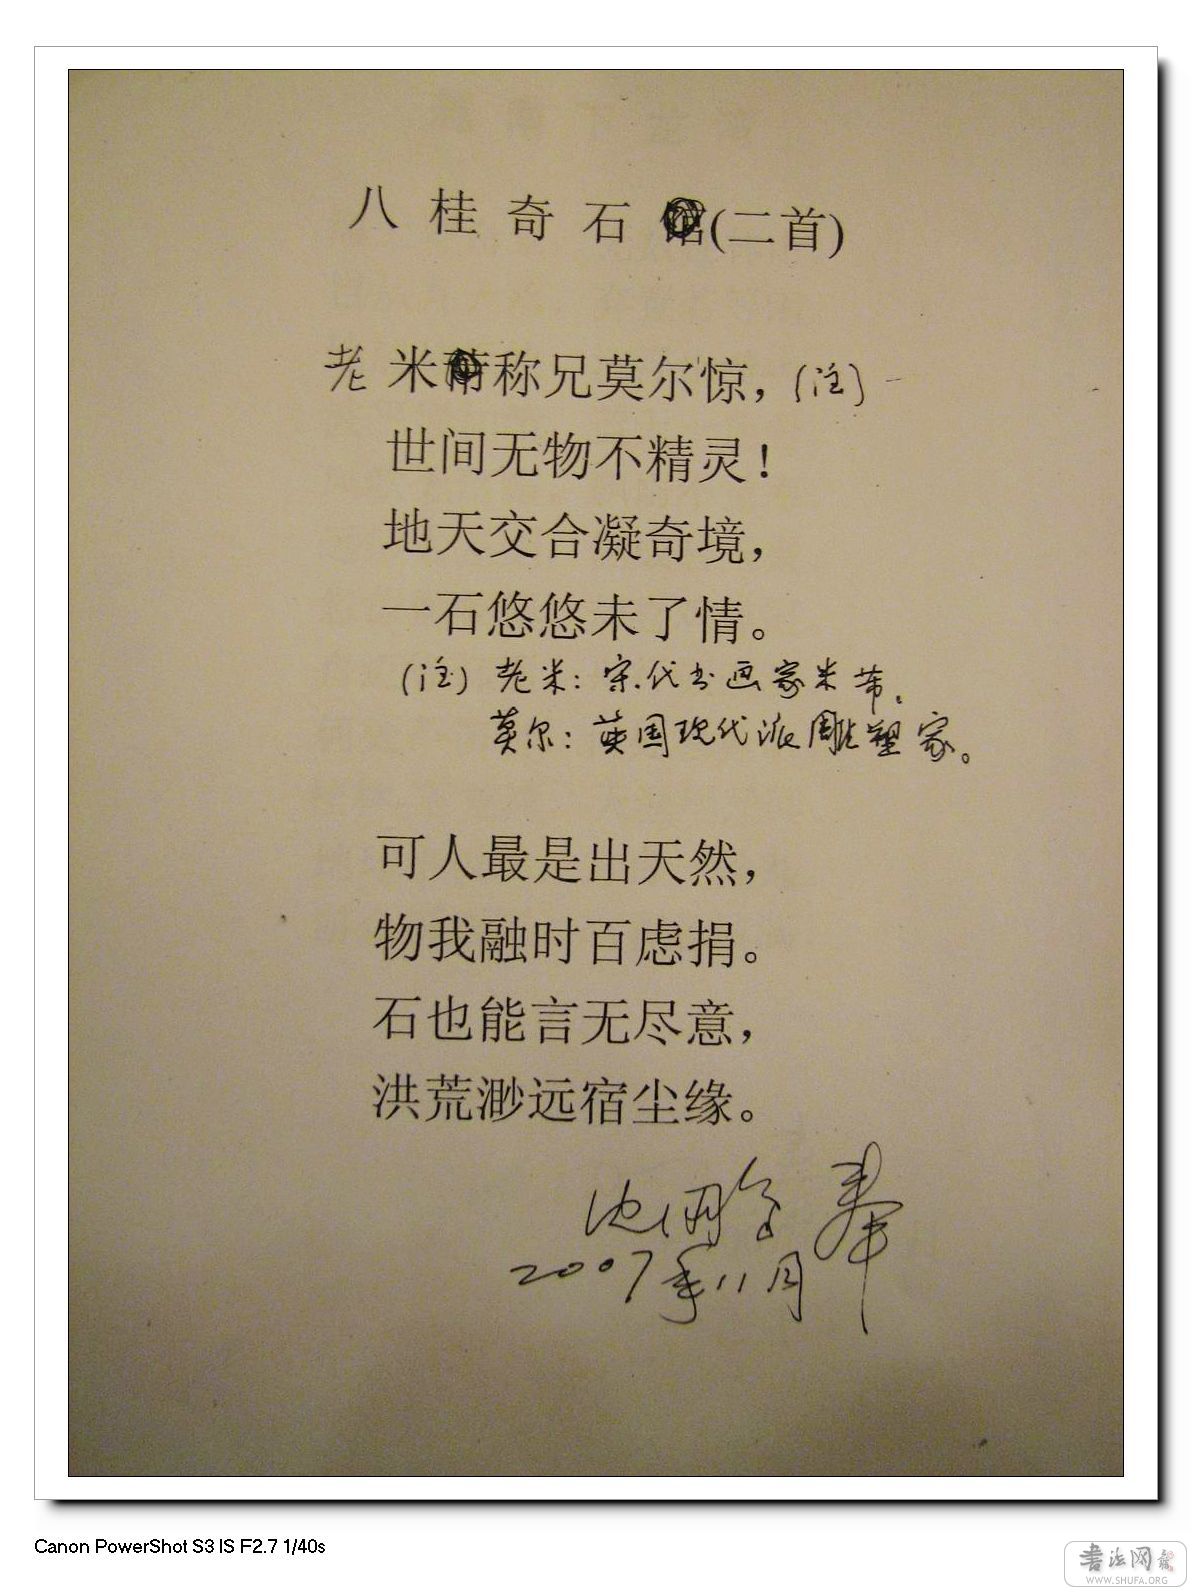 八桂奇石(二首)
老米称兄莫尔惊，(注)
世间无物不精灵！
地天交合凝奇境，
一石悠悠未了情。
(注) 老米：宋代书画家米芾。
莫尔：英国现代派雕塑家。
可人最是出天然，
物我融时百虑捐。
石也能言无尽意，
洪荒渺远宿尘缘。
奉
2007年八月
Canon PowerShot S3 IS F2.7 1/40s
书法网
WWW.SHUFA.ORG